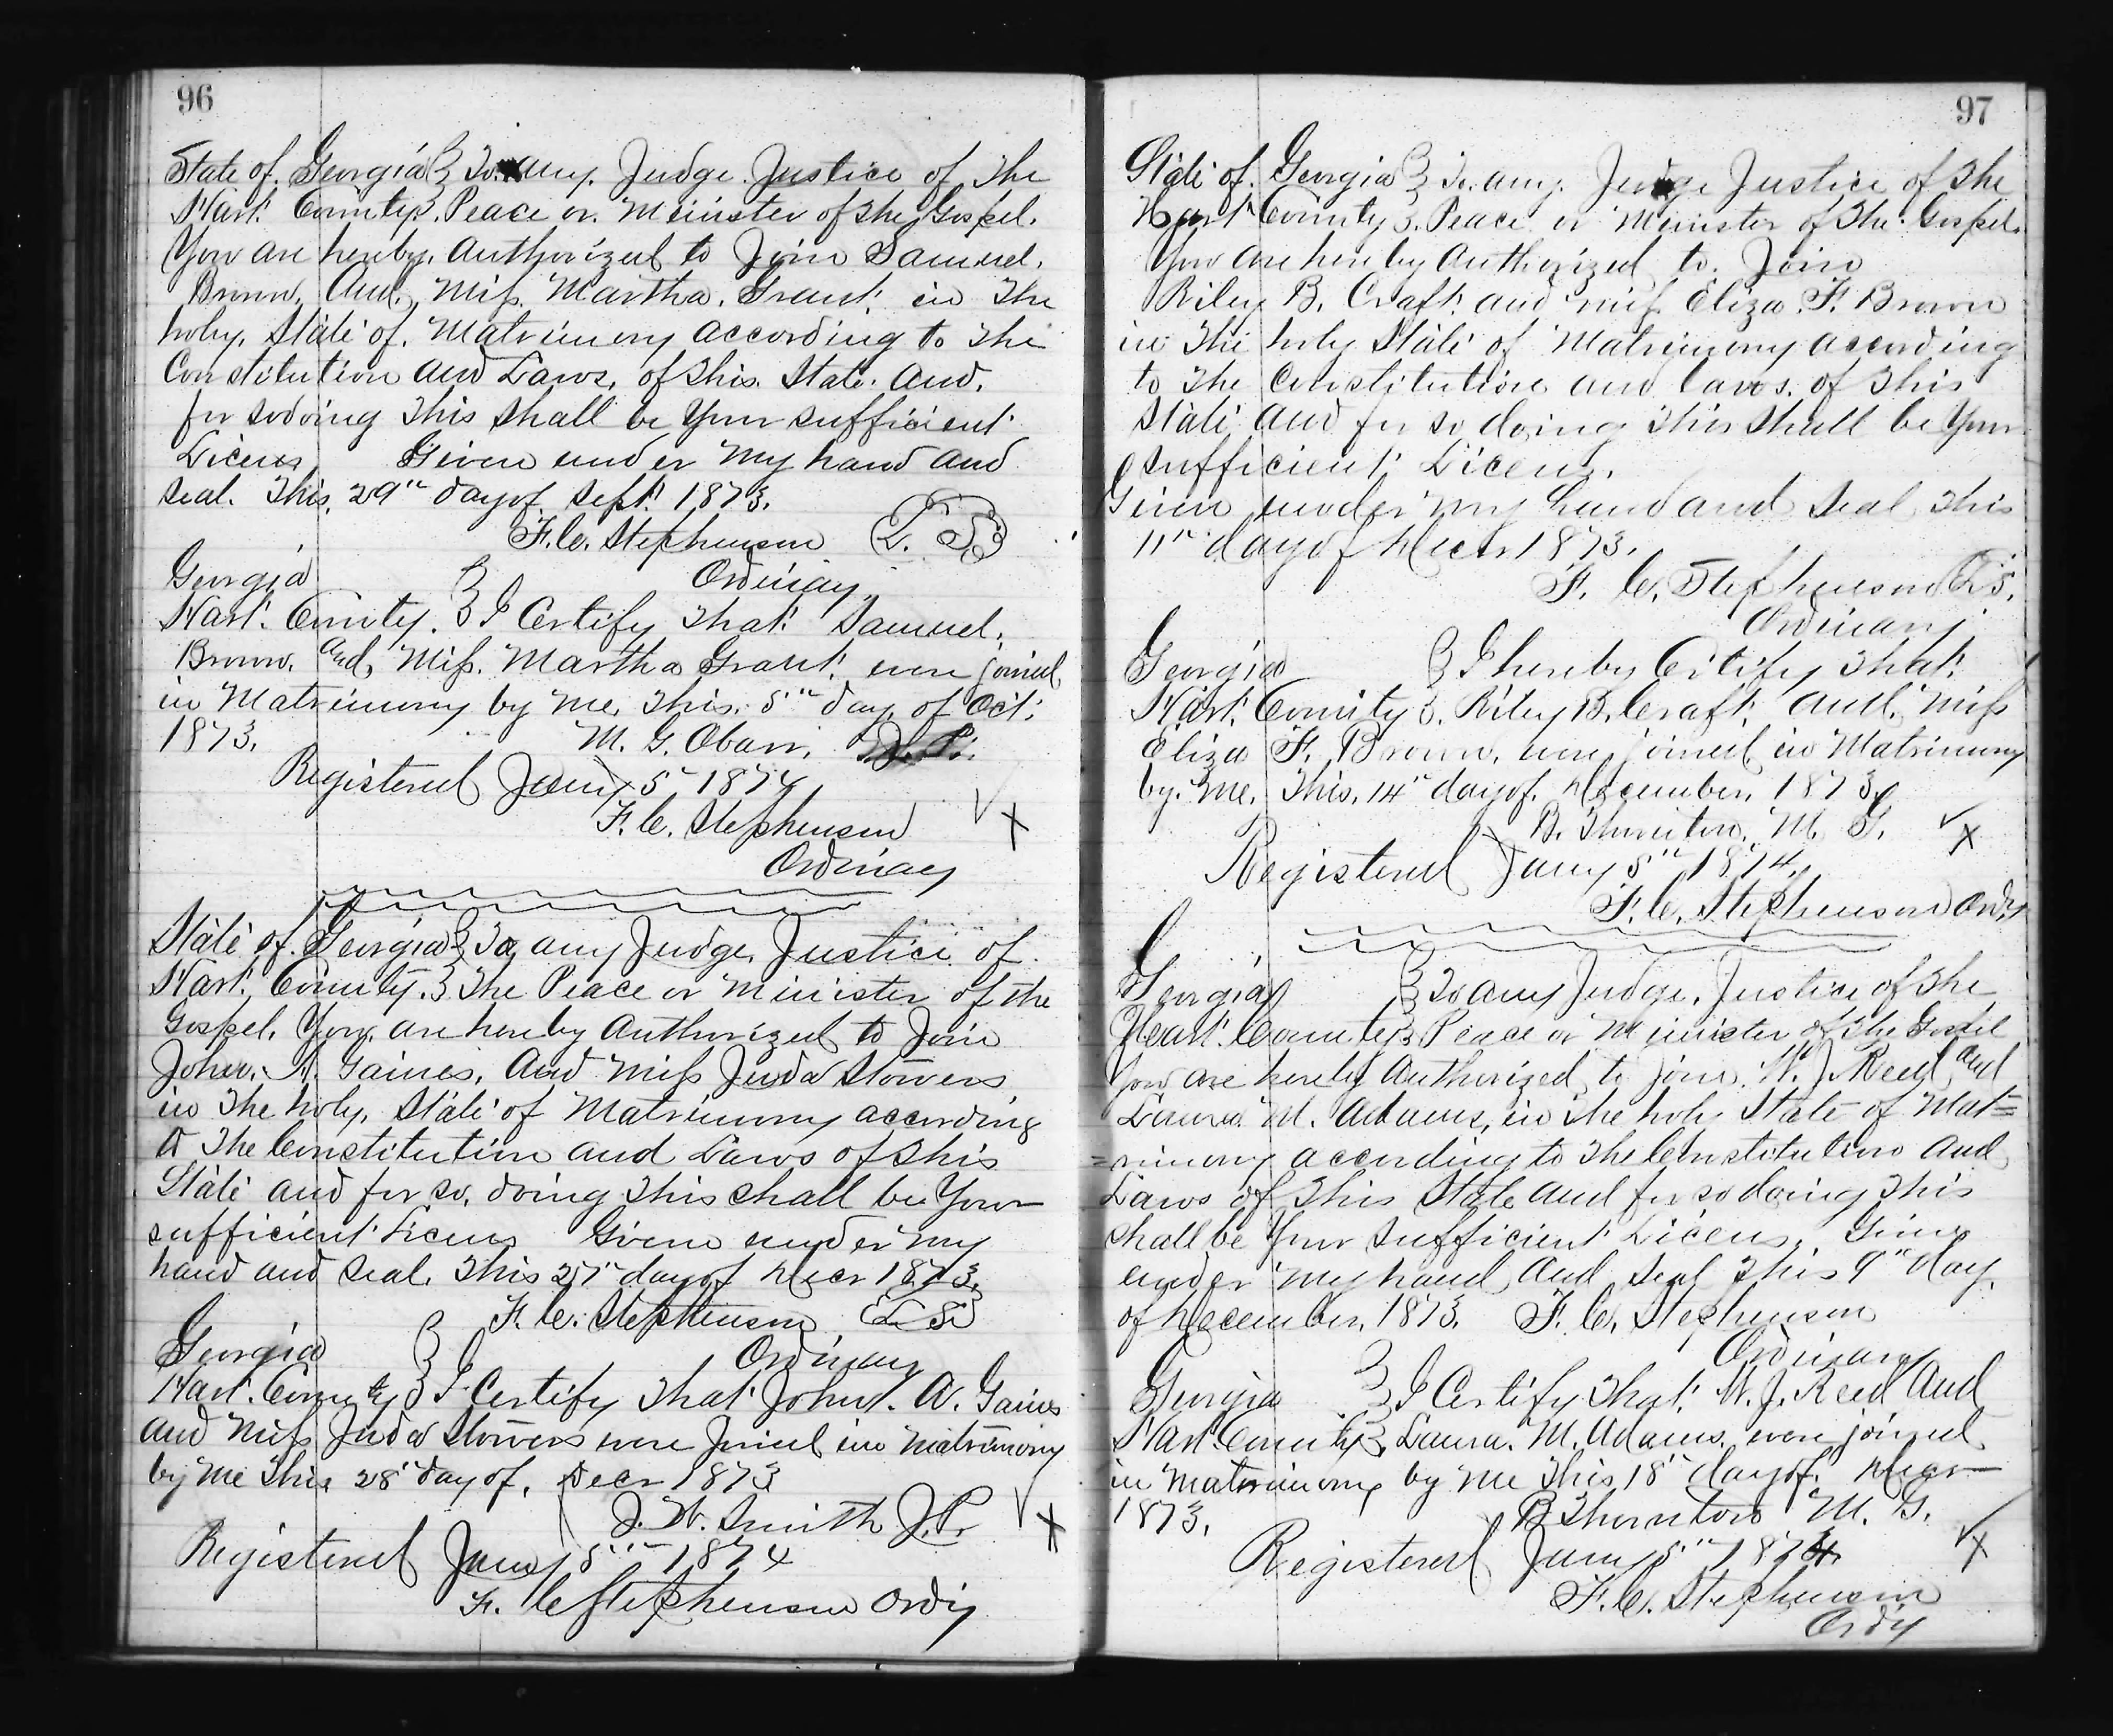 96
State of Georgia } To any Judge Justice of the
Hart County } Peace or Minister of the Gospel.
You are hereby Authorized to Join Samuel
Brown And Miss Martha Grant in the
holy State of Matrimony according to the
Constitution and Laws of this State And
for so doing this shall be Your sufficient
Licens Given under my hand and
seal. This 29th day of Sept 1873.
F. C. Stephenson (L. S.)
Ordinay
Georgia
Hart County. } I Certify that Samuel
Brown and Miss Martha Grant were joined
in Matrimony by me this 5th day of Oct
1873. M. G. Obarr, J. P.
Registered Jany 5th 1874
F. C. Stephenson
Ordinay
State of Georgia } To any Judge Justice of
Hart County. } the Peace or Minister of the
Gospel. You are hereby Authorized to Join
John A. Gaines, And Miss Juda Stowers
in the holy State of Matrimony according
to the Constitution and Laws of this
State and for so doing this shall be Your
sufficient Licens Given under my
hand and seal. This 27th day of Decr 1873.
F. C. Stephenson (L S)
Ordinary
Georgia
Hart County } I Certify that John A. Gaines
and Miss Juda Stowers were joined in matrimony
by me this 28th day of Decr 1873
J. W. Smith J. P.
Registered Jany 5th 1874
F. C Stephenson Ordy
97
State of Georgia } To any Judge Justice of the
Hart County } Peace or Minister of the Gospel.
You are hereby Authorized to Join
Riley B. Craft and Miss Eliza F. Brown
in the holy State of Matrimony according
to the Constitution and laws of this
State and for so doing this shall be Your
sufficient Licens.
Given under my hand and seal this
11th day of Decr 1873.
F. C. Stephenson L S.
Ordinary
Georgia } I hereby Certify that
Hart County } Riley B. Craft And Miss
Eliza F. Brown, were joined in Matrimony
by me this 14th day of December 1873,
B. Thornton M. G.
Registered Jany 5th 1874,
F. C. Stephenson Ordy
Georgia } To any Judge, Justice of the
Heart County } Peace or Minister of the Gospel
You are hereby Authorized to join W. J. Reed and
Laura M. Adams, in the holy State of Mat=
=rimony according to the Constitution And
Laws of this State and for so doing this
shall be Your sufficient Licens. Given
under my hand And seal this 9th day
of December, 1873. F. C. Stephenson
Ordinary
Georgia } I Certify that W. J. Reed And
Hart County } Laura M. Adams were joined
in matrimony by me this 18th day of Decr
1873. B Thornton M. G.
Registered Jany 5th 1874
F. C. Stephenson
Ordy